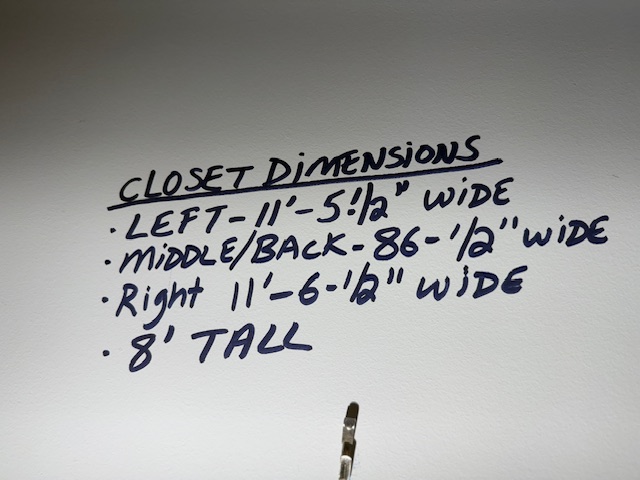 CLOSET DIMENSIONS
· LEFT - 11' - 5 1/2" WIDE
· MIDDLE/BACK - 86 - 1/2" WIDE
· Right 11' - 6 - 1/2" WIDE
· 8' TALL